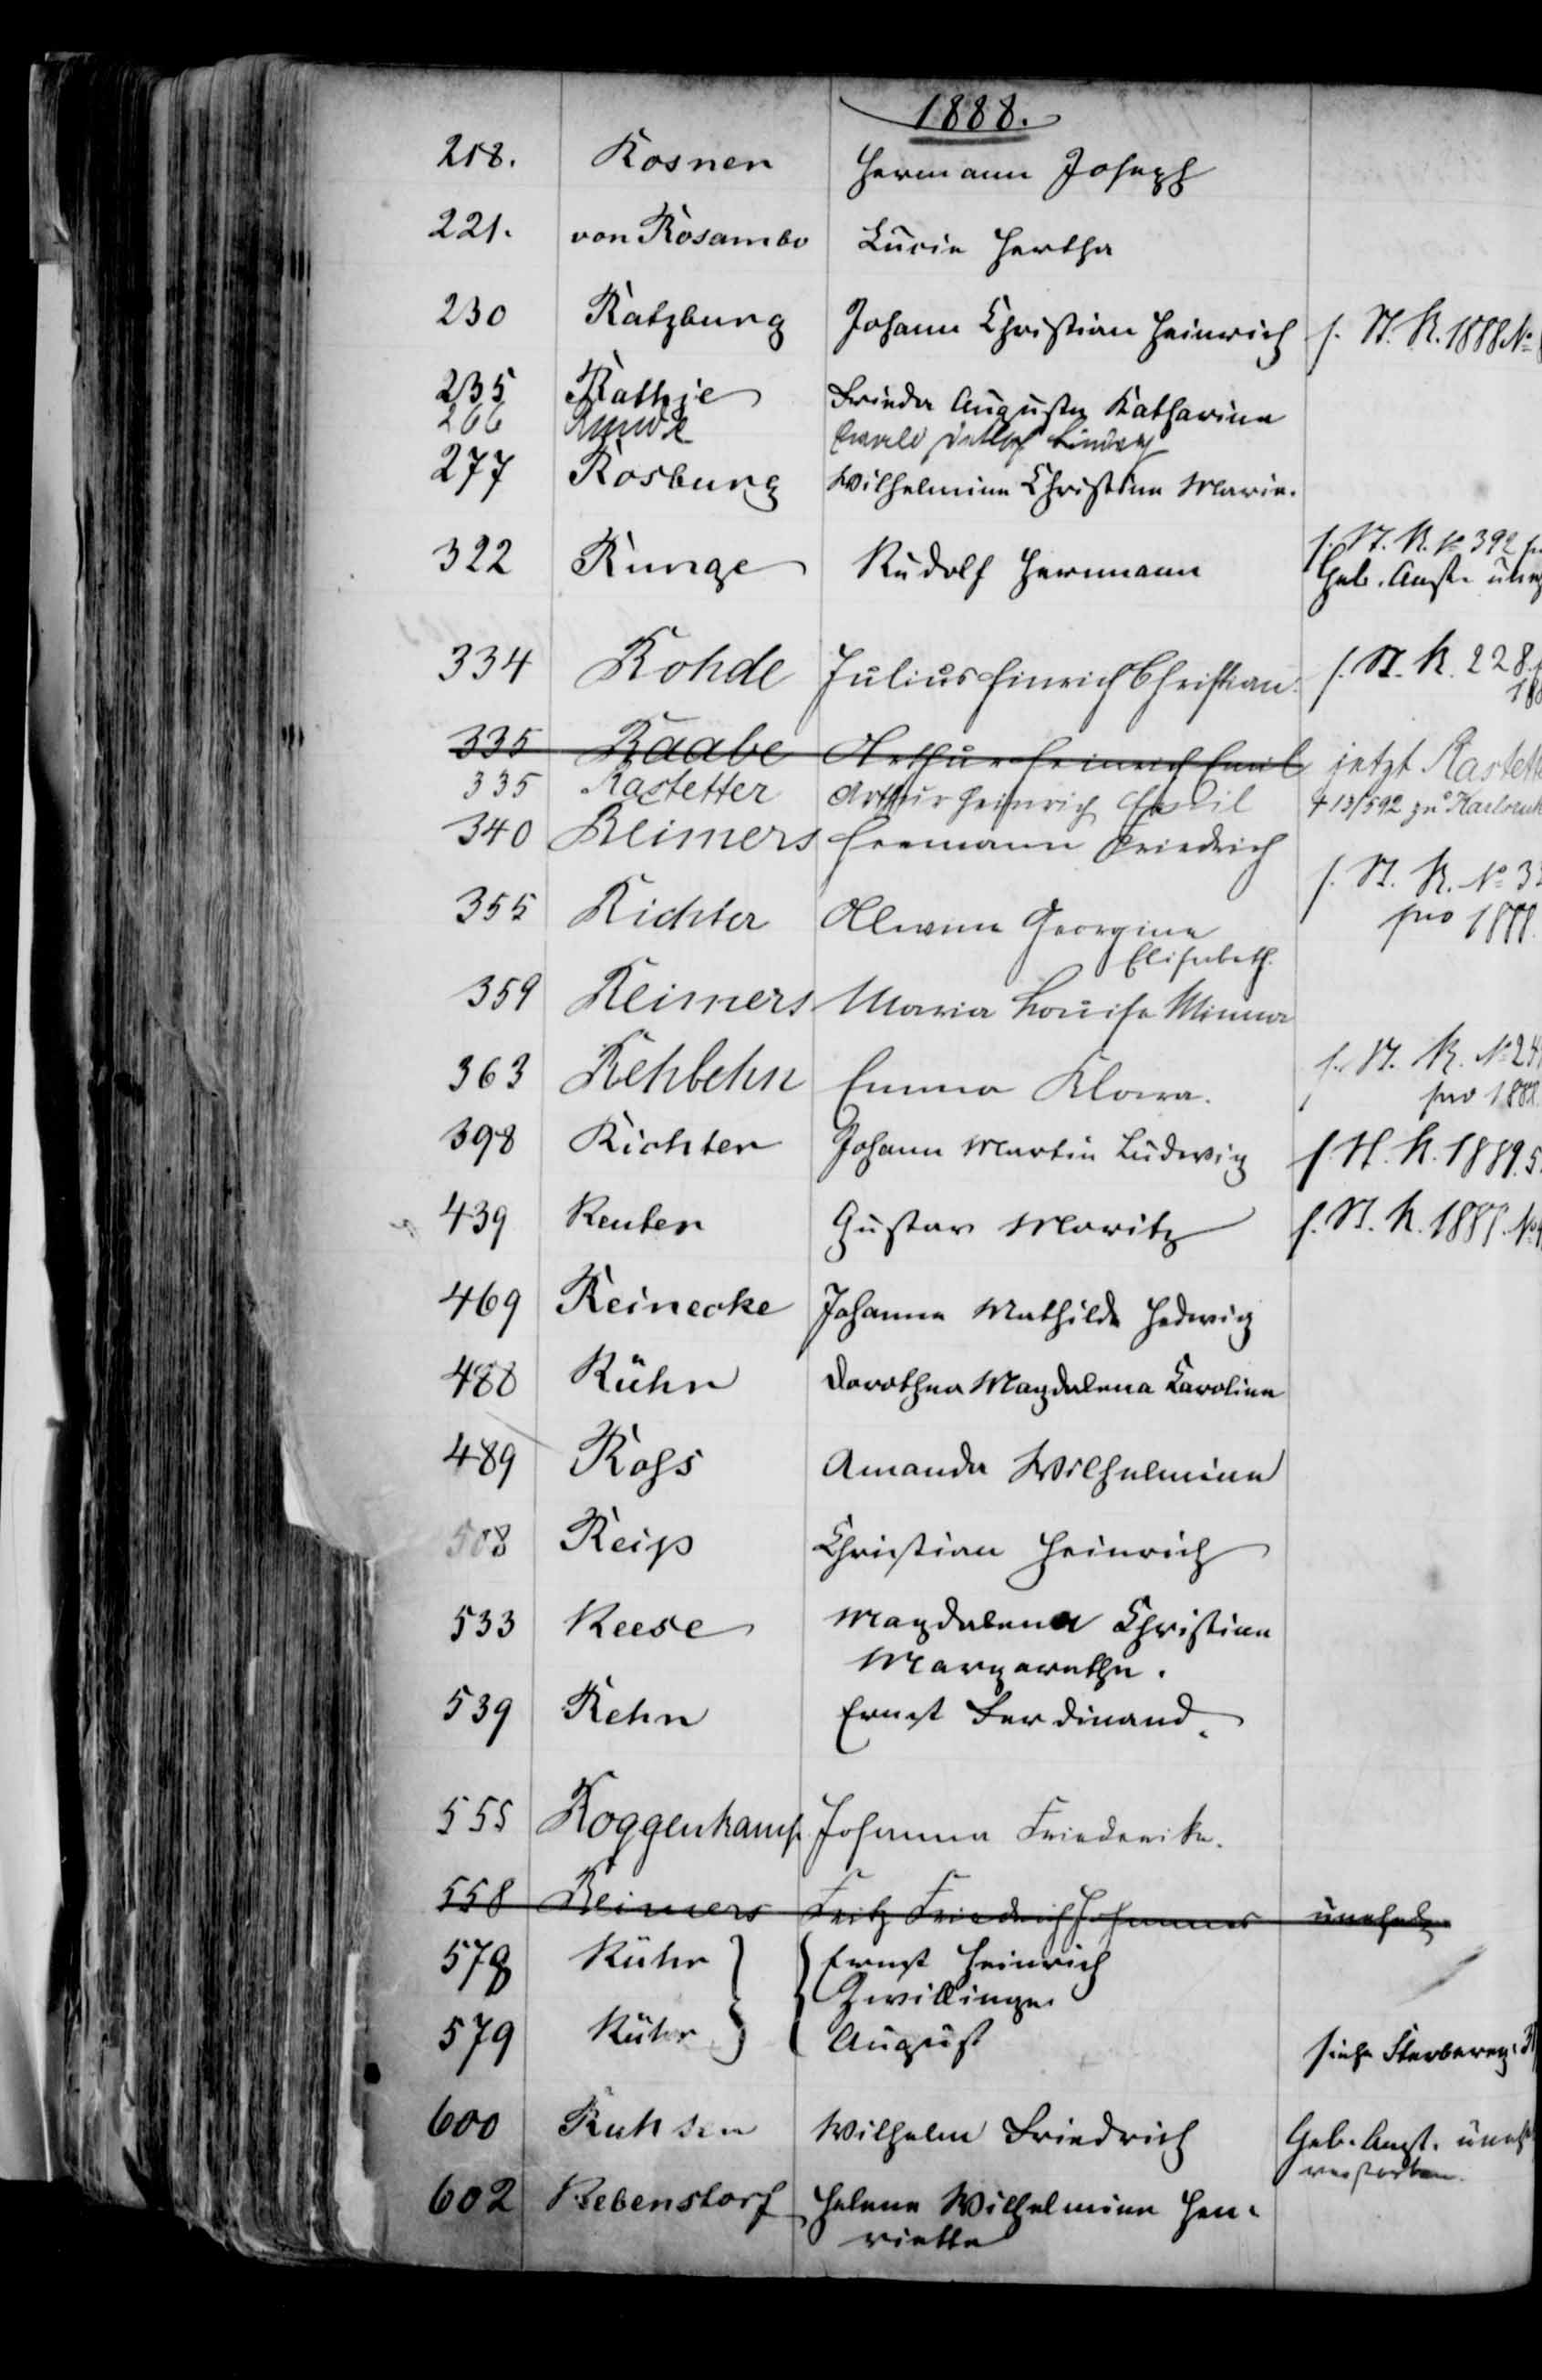 1888.
218. Rosner Hermann Joseph
221. von Rosambo Lucie Hertha
230 Ratzburg Johann Christian Heinrich s. St. R. 1888 No
235 Rathje Frieda Auguste Katharine
266 Detlof
277 Rosburg Wilhelmine Christine Marie.
322 Runge Rudolf Hermann s. St. R. No 392
Geb. Anst.
334 Rohde Julius Hinrich Christian. s. St. R. 228.
335 Raabe Arthur Heinrich Emil jetzt Rastett
335 Rastetter Arthur Heinrich Emil 13/592 zu Karlsruh
340 Reimers Hermann Friedrich
355 Richter Alwine Georgine s. St. R. No 33
Elisabeth. pro 1888.
359 Reimers Maria Louise Minna
363 Rehbehn Emma Klara. s. St. R. No 24
pro 1888.
398 Richter Johann Martin Ludwig s. St. R. 1889. 5
439 Reuter Gustav Moritz s. St. R. 1889. No
469 Reinecke Johanna Mathilde Hedwig
488 Rühr Dorothea Magdalena Caroline
489 Roſs Amanda Wilhelmine
508 Reip Christian Heinrich
533 Reese Magdalena Christine
Margarethe.
539 Rehn Ernst Ferdinand.
555 Roggenkamp Johanna Friederike.
558 Reimers Fritz Friedrich Johannes
578 Rühr } { Ernst Heinrich
Zwillinge
579 Rühr } { August siehe Sterbereg. 3
600 Ruhsen Wilhelm Friedrich Geb. Anst. uneh
verstorben.
602 Rebenstorf Helene Wilhelmine Hen-
riette